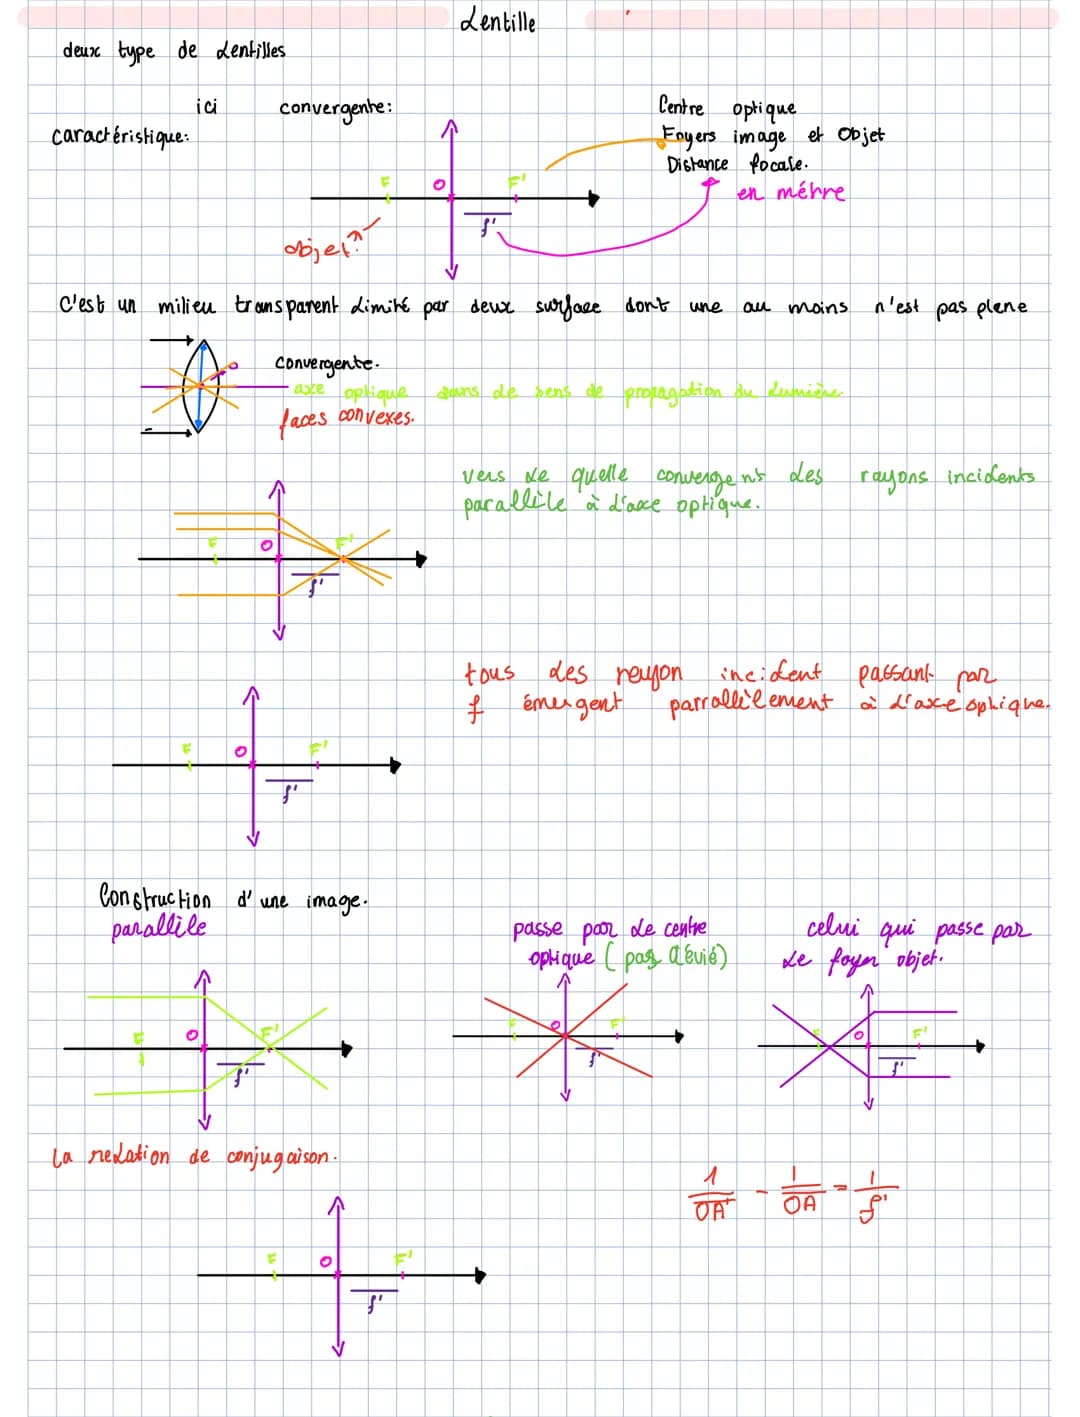 Lentille
deux type de Lentilles
ici convergente:
caractéristique:
Centre optique
Foyers image et Objet
Distance focale.
en mètre
F O F'
f'
objet?
C'est un milieu transparent Limité par deux surface dont une au moins n'est pas plene
convergente.
axe optique dans le sens de propagation du Lumière
faces convexes.
vers Le quelle convergent Les rayons incidents
parallèle à L'axe optique.
F O F'
f'
tous Les rayon incident passant par
f émergent parrallèlement à L'axe ophique.
F O F'
f'
Construction d'une image.
parallèle
passe par Le centre
optique (pas dévié)
celui qui passe par
Le foyer objet.
F O F'
f'
F O F'
f'
F O F'
f'
La relation de conjugaison.
1/OA' - 1/OA = 1/f'
F O F'
f'